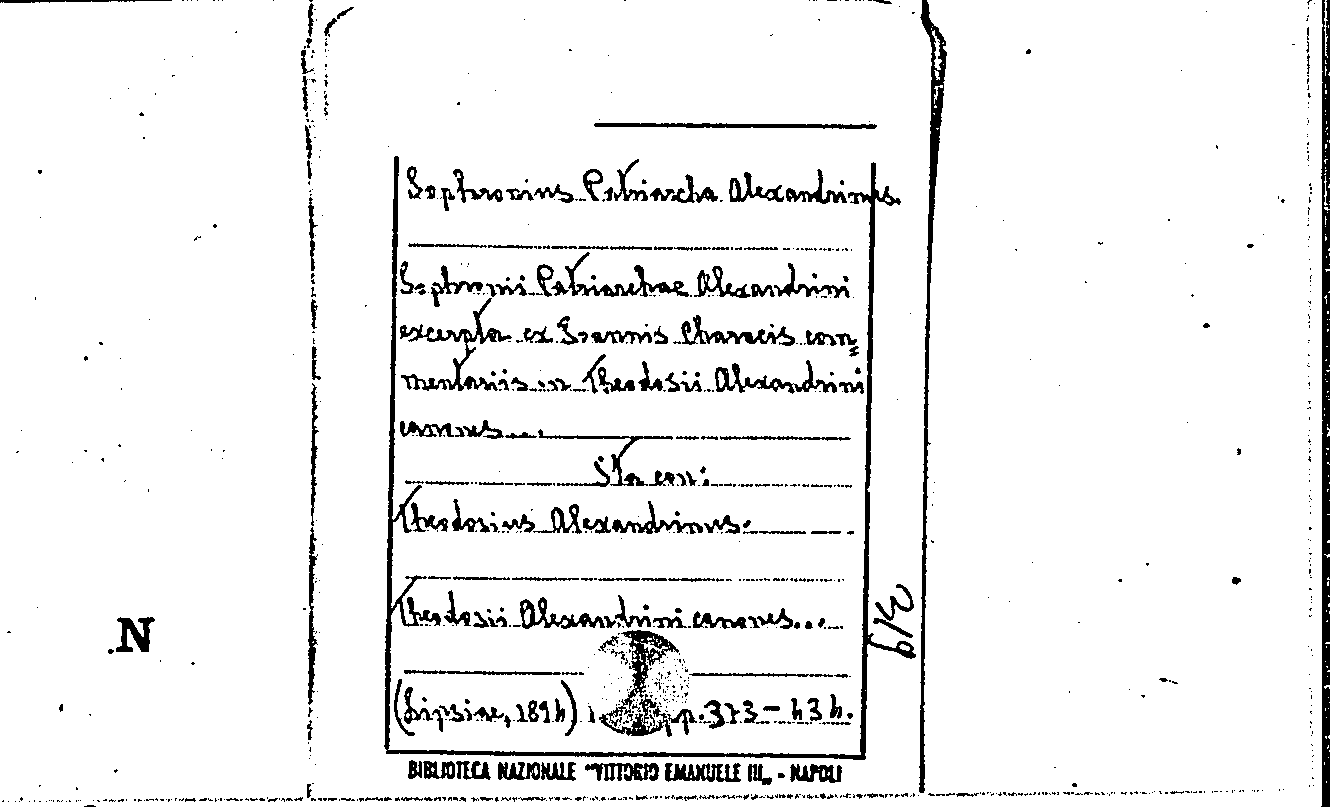 Sophronius Patriarcha Alexandrinus.
Sophronii Patriarchae Alexandrini
excerpta ex Ioannis Characis com=
mentariis in Theodosii Alexandrini
canones...
Sta con:
Theodosius Alexandrinus.
Theodosii Alexandrini canones...
(Lipsiae, 1894) pp. 373-434.
BIBLIOTECA NAZIONALE "VITTORIO EMANUELE III„ - NAPOLI
N